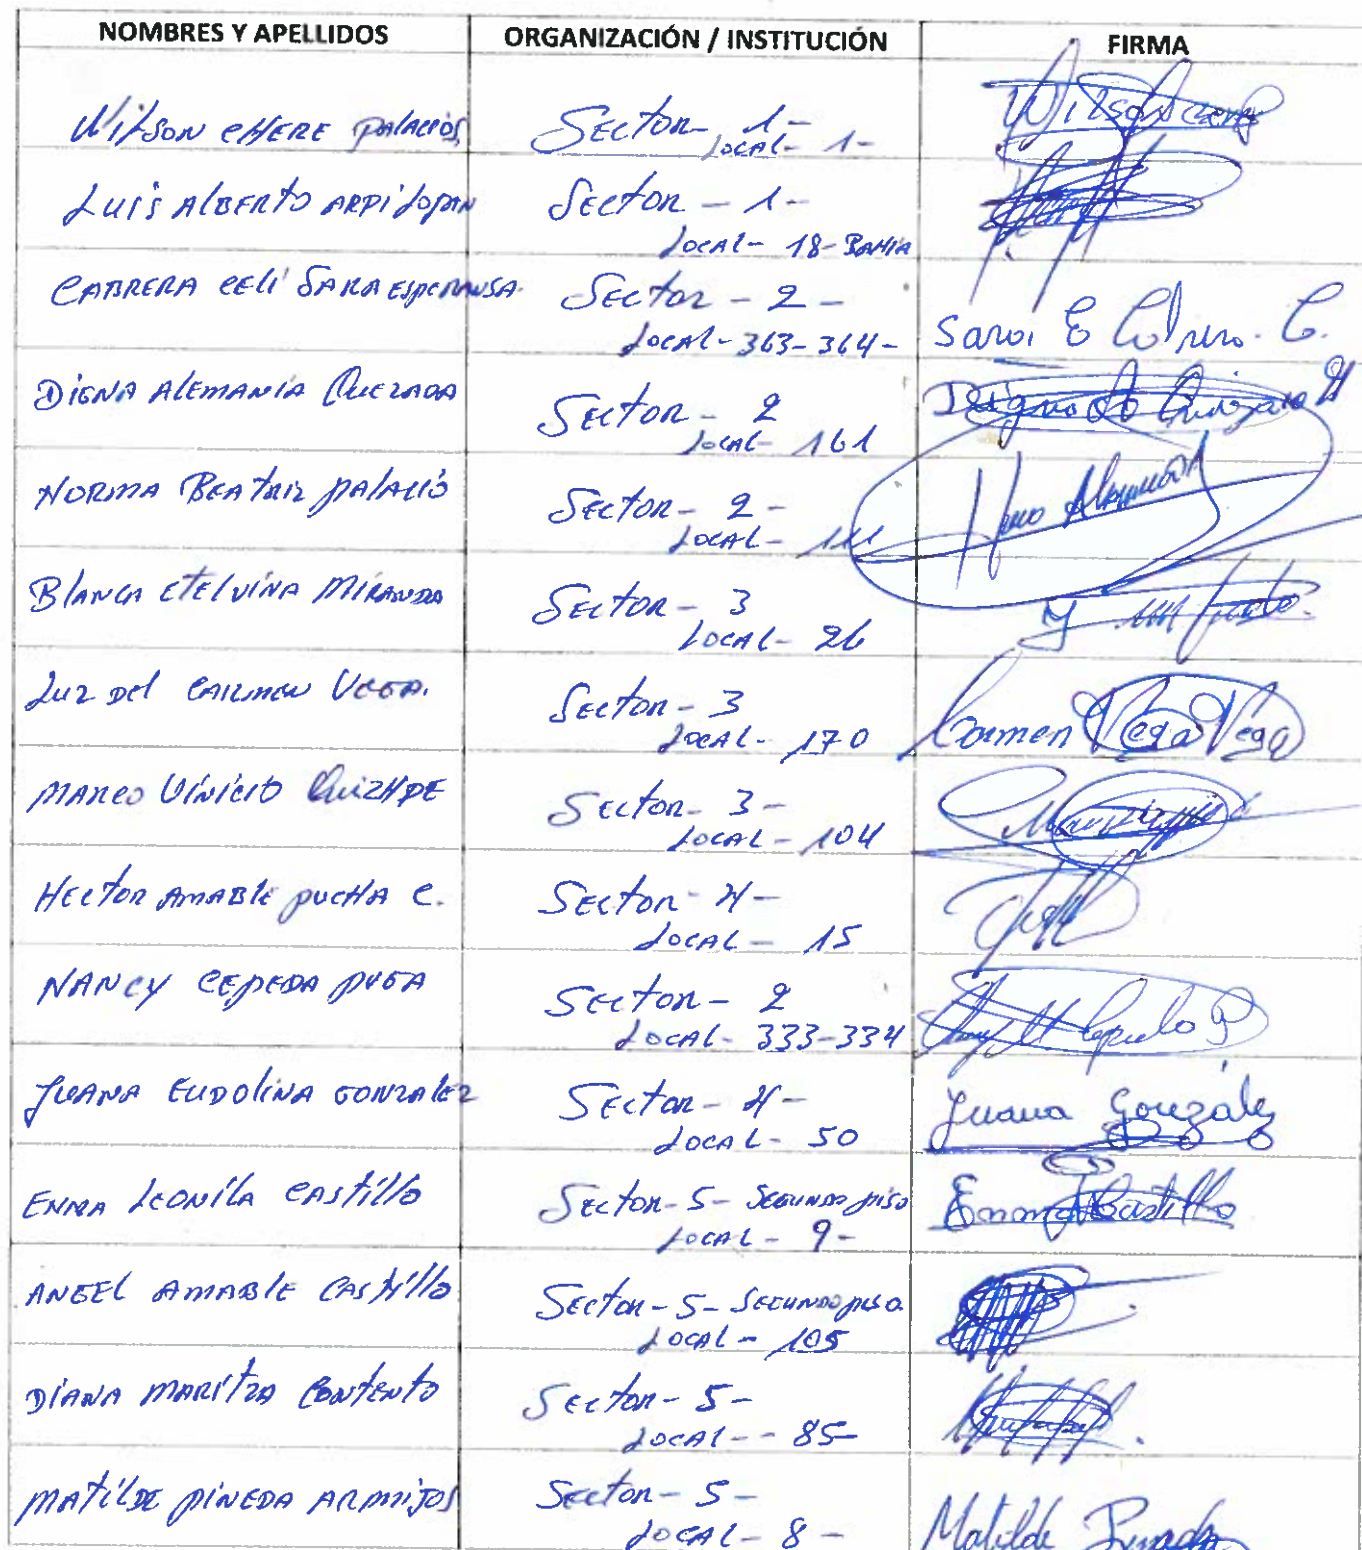 NOMBRES Y APELLIDOS ORGANIZACIÓN / INSTITUCIÓN FIRMA
Wilson CHERE PALACIOS Sector - 1 -
Local - 1 -
Luis Alberto ARPI Sector - 1 -
Local - 18 - BAHIA
CABRERA CELI SARA ESPERANSA. Sector - 2 -
Local - 363 - 364 -
DIGNA ALEMANIA QUEZADA Sector - 2
Local - 161
NORMA BEATRIZ PALACIÓ Sector - 2 -
Local -
BLANCA ETELVINA MIRANDA Sector - 3
Local - 26
Luz Del CARMEN VEGA. Sector - 3 Carmen Vega Vega
Local - 170
MARCO VINICIO QUIZHPE Sector - 3 -
Local - 104
HECTOR AMABLE PUCHA C. Sector - 4 -
Local - 15
NANCY CEPEDA PUGA Sector - 2
Local - 333 - 334
JUANA EUDOLINA GONZALEZ Sector - 4 - Juana González
Local - 50
ENMA LEONILA CASTILLO Sector - 5 - SEGUNDO PISO Enma Castillo
Local - 9 -
ANGEL AMABLE CASTILLO Sector - 5 - SEGUNDO PISO.
Local - 105
DIANA MARITZA CONTENTO Sector - 5 -
Local - - 85 -
MATILDE PINEDA ARMIJOS Sector - 5 - Matilde Pineda
Local - 8 -